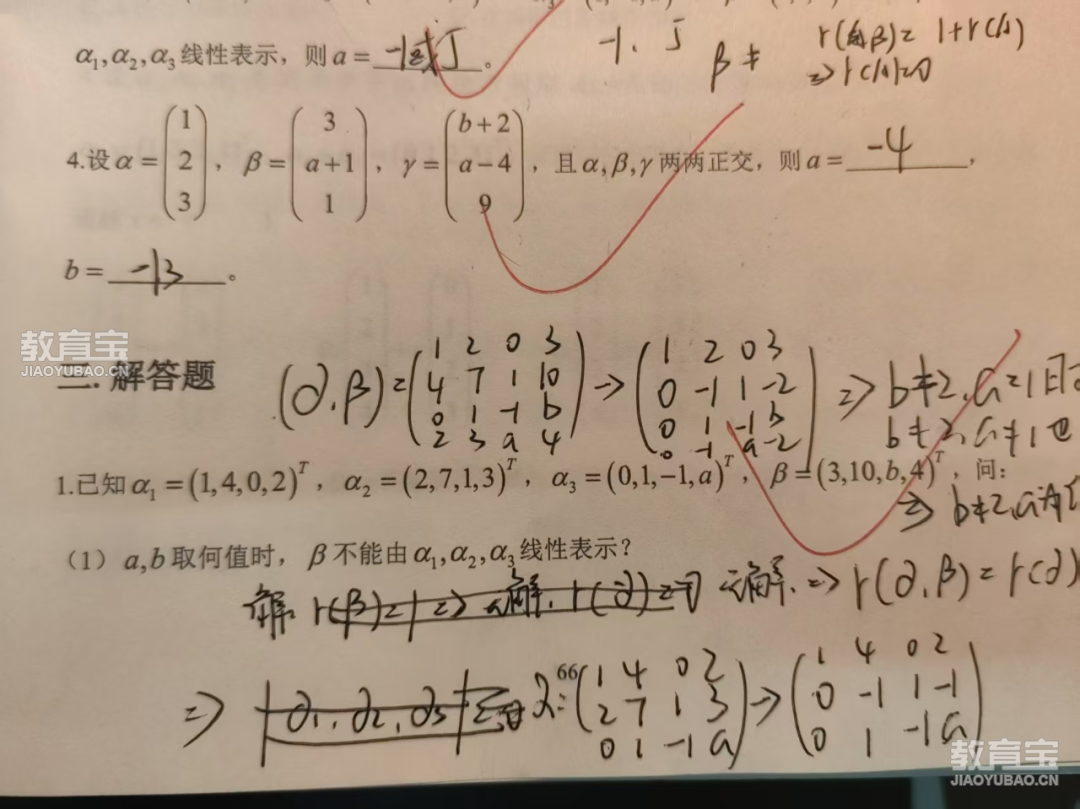 α₁,α₂,α₃线性表示，则a= -1或5 。 -1、5 β≠ r(α,β)= 1+r(A)
⇒ r(A)=0
4.设α=(1 2 3)，β=(3 a+1 1)，γ=(b+2 a-4 9)，且α,β,γ两两正交，则a= -4 ，
b= -13 。
教育宝
JIAOYUBAO.CN
二.解答题
(α,β)=(1 2 0 3
4 7 1 10
0 1 -1 b
2 3 a 4) → (1 2 0 3
0 -1 1 -2
0 1 -1 b
0 -1 a -2) ⇒ b≠2, a=1且
b≠2, a≠1也
⇒ b≠2, a为任
1.已知α₁=(1,4,0,2)ᵀ，α₂=(2,7,1,3)ᵀ，α₃=(0,1,-1,a)ᵀ，β=(3,10,b,4)ᵀ，问：
（1）a,b取何值时，β不能由α₁,α₂,α₃线性表示？
解 无解. ⇒ r(α,β)=r(α)
66
⇒ α: (1 4 0 2
2 7 1 3
0 1 -1 a) → (1 4 0 2
0 -1 1 -1
0 1 -1 a)
教育宝
JIAOYUBAO.CN